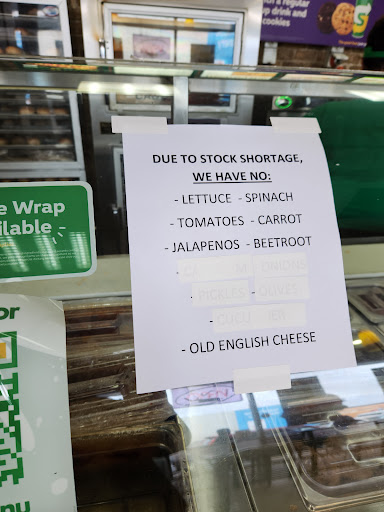 n a regular
up drink and
cookies
e Wrap
ilable
DUE TO STOCK SHORTAGE,
WE HAVE NO:
- LETTUCE - SPINACH
- TOMATOES - CARROT
- JALAPENOS - BEETROOT
- ONIONS
- PICKLES - OLIVES
- OLD ENGLISH CHEESE
or
nu